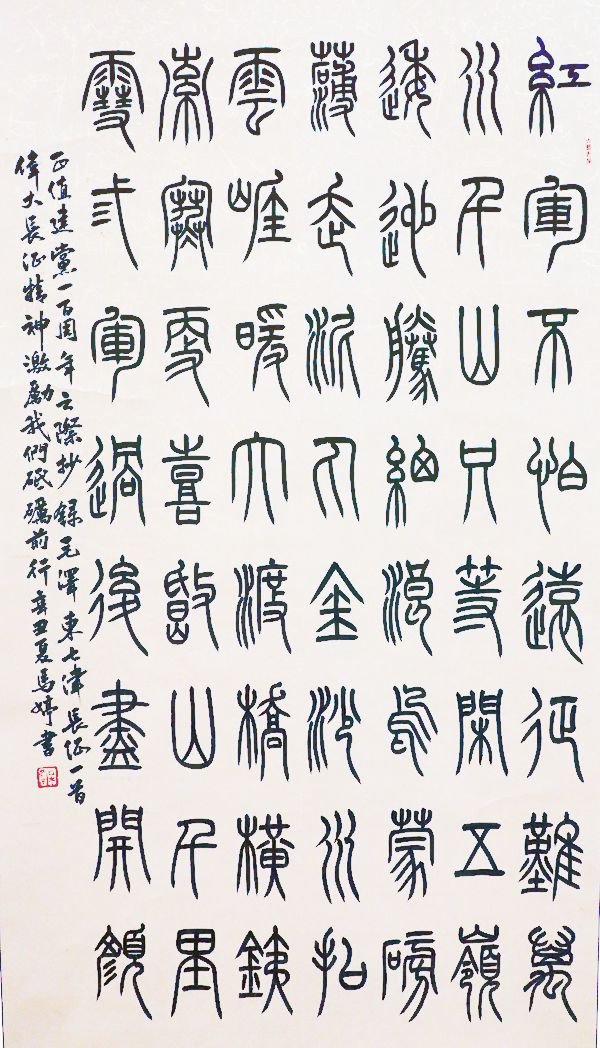 紅軍不怕遠征難萬
水千山只等閑五嶺
逶迤騰細浪烏蒙磅
礴走泥丸金沙水拍
雲崖暖大渡橋橫鐵
索寒更喜岷山千里
雪弎軍過後盡開顏
正值建黨一百周年之際抄錄毛澤東七律長征一首
偉大長征精神激勵我們砥礪前行辛丑夏馬婷書